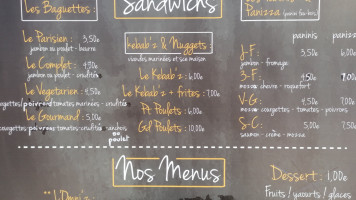 Sandwichs
Les Baguettes :
Le Parisien : 3,50€
jambon ou poulet - beurre
Le Complet : 4,30€
jambon ou poulet - crudités
Le Vegetarien : 4,50€
courgettes poivrons tomates marinées - crudités
Le Gourmand : 5,00€
courgettes poivrons tomates - crudités
ou poulet
Kebab'z & Nuggets :
viandes marinées et sa maison
Le Kebab'z : 6,00€
Le Kebab'z + frites : 7,00€
Pt Poulets : 6,00€
Gd Poulets : 10,00€
Panizza
paninis
J-F :
jambon - fromage
3-F :
mozza - chèvre - roquefort
V-G :
mozza - courgettes - tomates - poivrons
S-C : 5,00€ 7,50€
saumon - crème - mozza
Nos Menus
Dessert : 1,00€
Fruits / yaourts / glaces